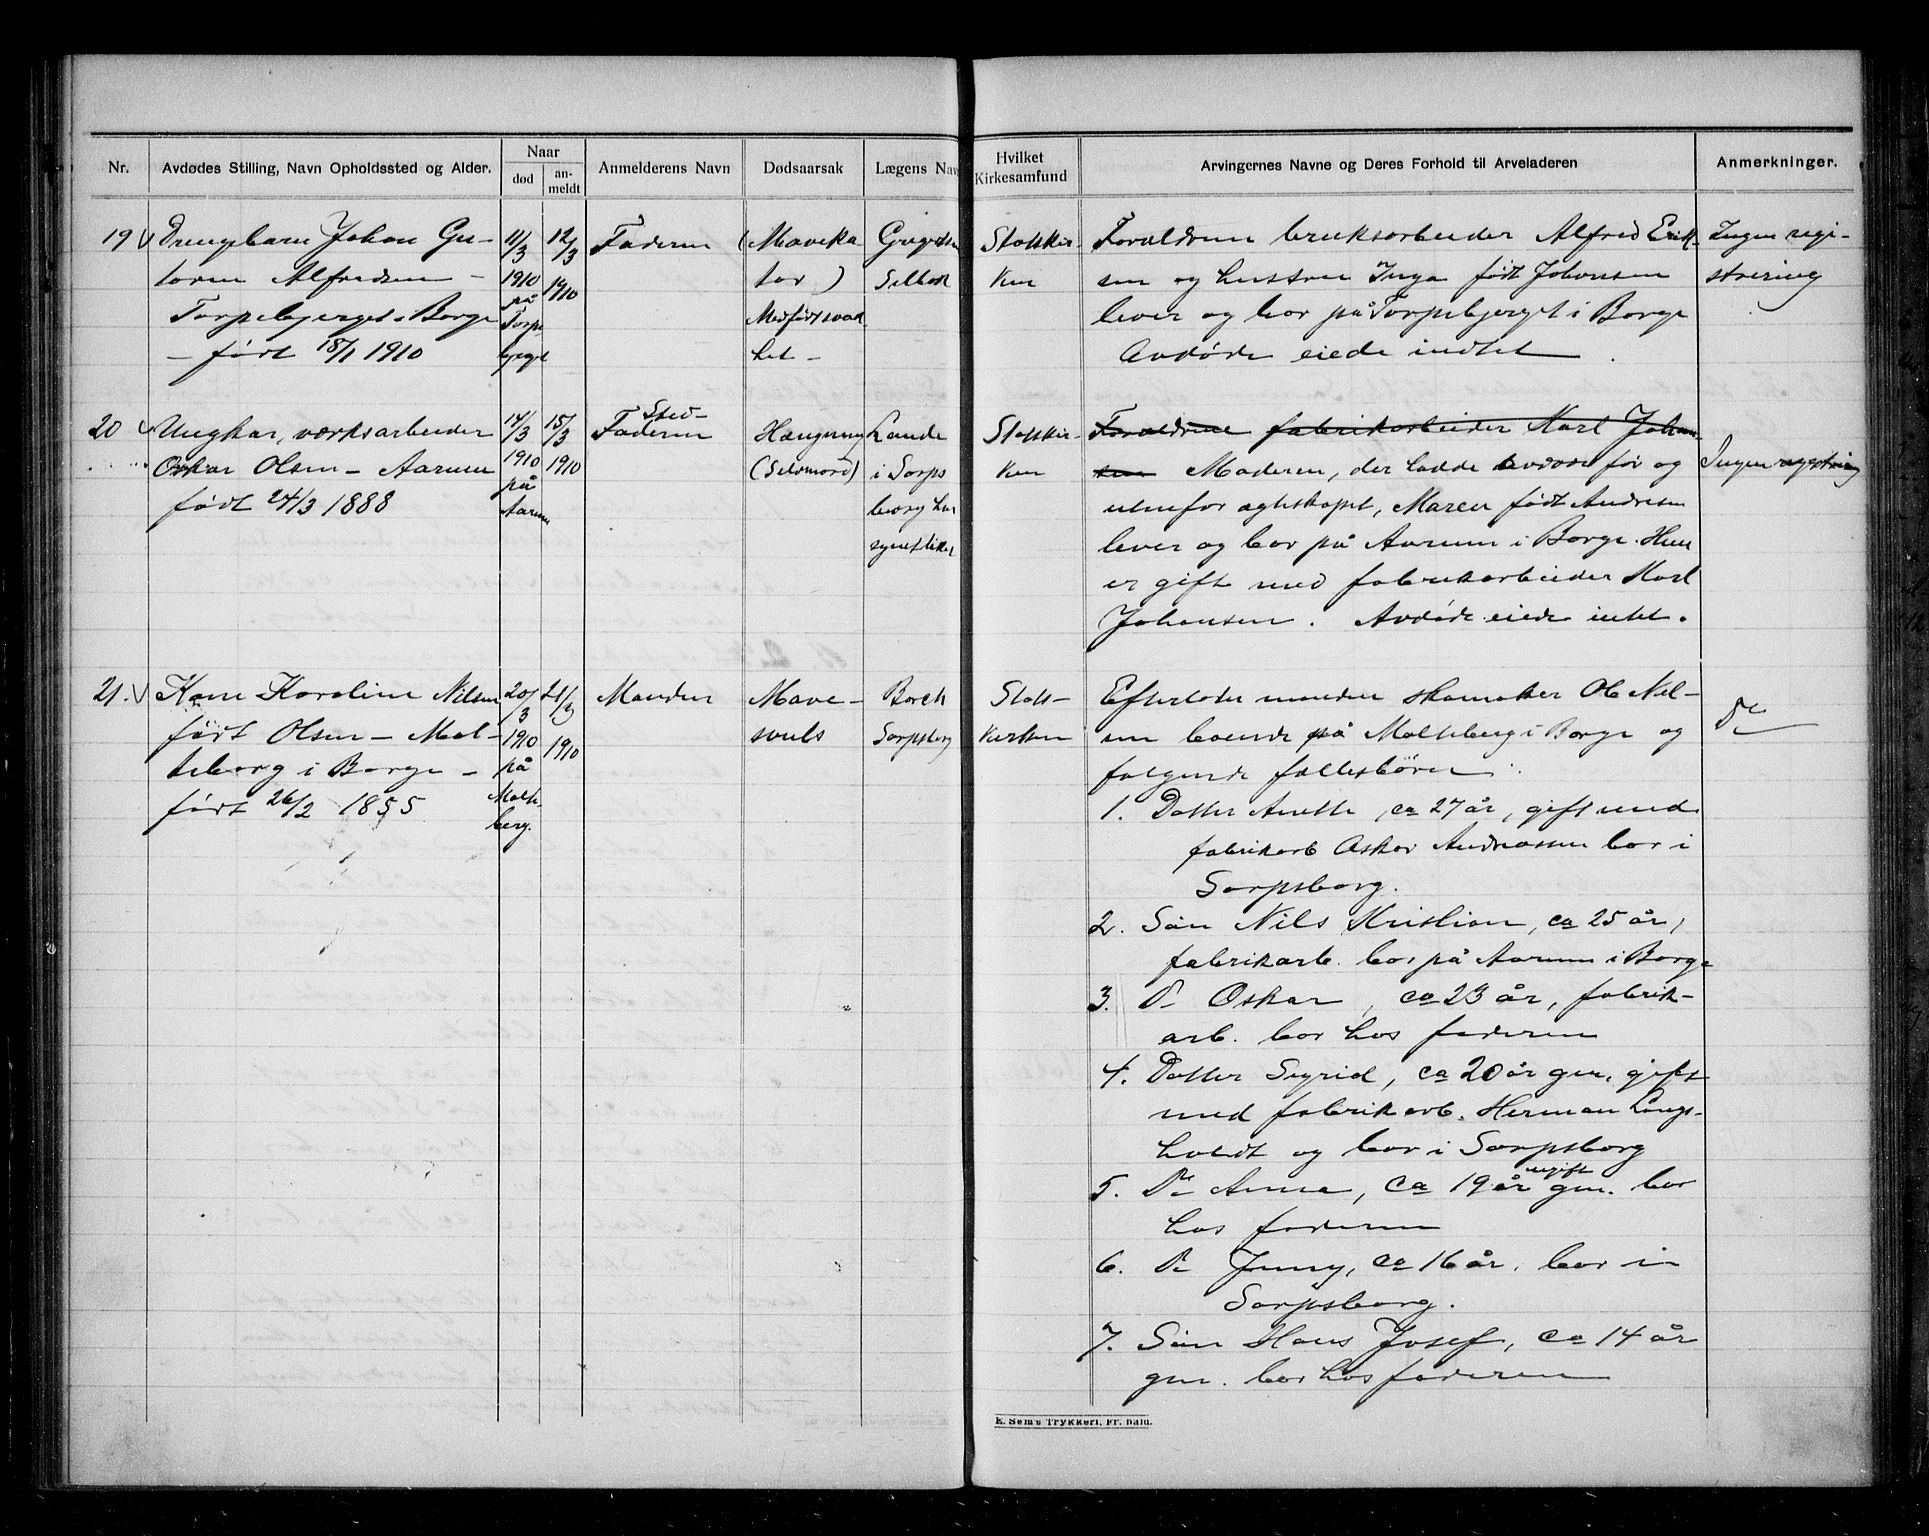 Nr.
Avdødes Stilling, Navn Opholdssted og Alder.
Naar
død
an-
meldt
Anmelderens Navn
Dødsaarsak
Lægens Nav
Hvilket
Kirkesamfund
Arvingernes Navne og Deres Forhold til Arveladeren
Anmerkninger.
19
Drengebarn Johan Gu-
torm Alfredsen -
Torpebjerget, Borge
- født 18/1 1910
11/3
1910
på
Torpe
bjerget
12/3
1910
Faderen
(Maveka
tar)
Medfødt svak
het -
Gregersen
Sellebak
Statskir
ken
Forældrene bruksarbeider Alfred Erik-
sen og hustru Inga født Johansen
lever og bor på Torpebjerget i Borge
Avdøde eiede intet.
Ingen regi-
strering
20
Ungkar, værksarbeider
Oskar Olsen - Aarum
født 24/3 1888
14/3
1910
på
Aarum
15/3
1910
Sted-
Faderen
Hængning
(Selvmord)
Lande
i Sarps
borg har
synet liket
Statskir
ken
Forældrene fabrikarbeider Karl Johan-
sen Moderen, der hadde avdøde før og
utenfor ægteskapet, Maren født Andresen
lever og bor på Aarum i Borge. Hun
er gift med fabrikarbeider Karl
Johansen. Avdøde eiede intet.
Ingen registrering
21.
Kone Karoline Nilsen
født Olsen - Mol-
teberg i Borge -
født 26/2 1855
20/3
1910
på
Molte
berg.
21/3
1910
Manden
Mave-
svuls
Borch
Sarpsborg
Stats-
kirken
Efterlater manden skomaker Ole Nil-
sen boende på Molteberg i Borge og
følgende fællesbörn:
1. Datter Anette, ca 27 år, gift med
fabrikarb Oskar Andreassen bor i
Sarpsborg.
2. Sön Nils Kristian, ca 25 år,
fabrikarb. bor på Aarum i Borge
3. Do Oskar, ca 23 år, fabrik-
arb. bor hos faderen
4. Datter Sigrid, ca 20 år gm. gift
med fabrikarb. Herman Langs-
holdt og bor i Sarpsborg
5. Do Anna, ca 19 år ugift gm. bor
hos faderen
6. Do Jenny, ca 16 år, bor i
Sarpsborg.
7. Sön Hans Josef, ca 14 år
gm. bor hos faderen
Do
E. Sem's Trykkeri, Fr. hald.